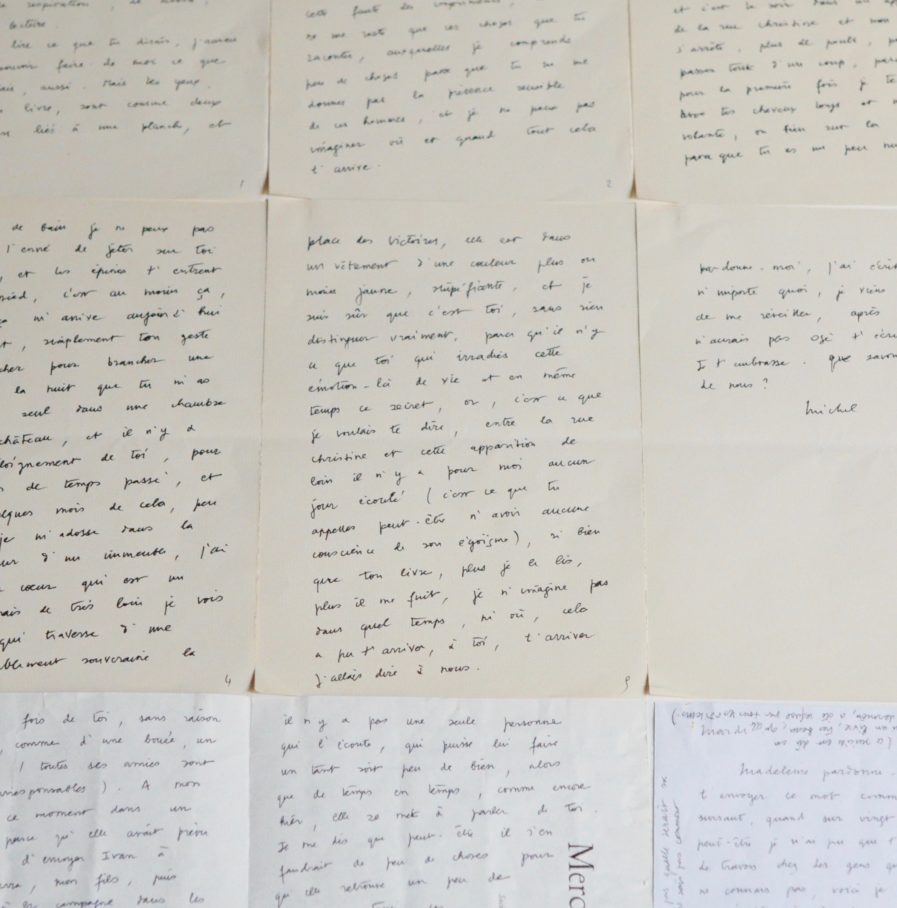 respiration, de
lecture.
lire ce que tu dirais, j'aurais
pouvoir faire de moi ce que
ais, aussi. Mais les yeux
livre, sont comme deux
liés à une planche, et
1
cette faute des
ne me reste que ces choses que tu
racontes, auxquelles je comprends
peu de choses parce que tu ne me
donnes pas la présence sensible
de ces hommes, et je ne peux pas
imaginer où et quand tout cela
t'arrive.
2
et c'est le soir dans un
de la rue Christine et mon
s'arrête, plus de pouls,
passer tout d'un coup,
pour la première fois je te
avec tes cheveux longs et
volante, ou bien sur la
parce que tu es un peu
de bain je ne peux pas
l'envie de jeter sur toi
, et les épines t'entrent
pied, c'est au moins ça,
ça m'arrive aujourd'hui
t, simplement ton geste
cher pour brancher une
la nuit que tu m'as
seul dans une chambre
château, et il n'y a
loignement de toi, pour
de temps passé, et
lques mois de cela, peu
je m'adosse dans la
ur d'un immeuble, j'ai
cœur qui est un
mais de très loin je vois
qui traverse d'une
blement souveraine la
4
place des Victoires, elle est dans
un vêtement d'une couleur plus ou
moins jaune, stupéfiante, et je
suis sûr que c'est toi, sans rien
distinguer vraiment, parce qu'il n'y
a que toi qui irradies cette
émotion-là de vie et en même
temps ce secret, or, c'est ce que
je voulais te dire, entre la rue
Christine et cette apparition de
loin il n'y a pour moi aucun
jour écoulé (c'est ce que tu
appelles peut-être n'avoir aucune
conscience de son égoïsme), si bien
que ton livre, plus je le lis,
plus il me fuit, je n'imagine pas
dans quel temps, ni où, cela
a pu t'arriver, à toi, t'arriver
j'allais dire à nous.
5
pardonne-moi, j'ai écrit
n'importe quoi, je viens
de me réveiller, après
n'aurais pas osé t'écrire
Je t'embrasse. que savons
de nous?
Michel
fois de toi, sans raison
, comme d'une bouée, un
toutes ses amies sont
responsables). A mon
ce moment dans un
parce qu'elle avait prévu
d'envoyer Ivan à
, mon fils, puis
campagne dans les
il n'y a pas une seule personne
qui l'écoute, qui puisse lui faire
un tant soit peu de bien, alors
que de temps en temps, comme encore
hier, elle se met à parler de toi.
Je me dis que peut-être il s'en
faudrait de peu de choses pour
qu'elle retrouve un peu de
Merc
Madeleine pardonne
t'envoyer ce mot comme
suivant, quand sur vingt
peut-être je n'ai pu que
de travers chez les gens
ne connais pas, voici je